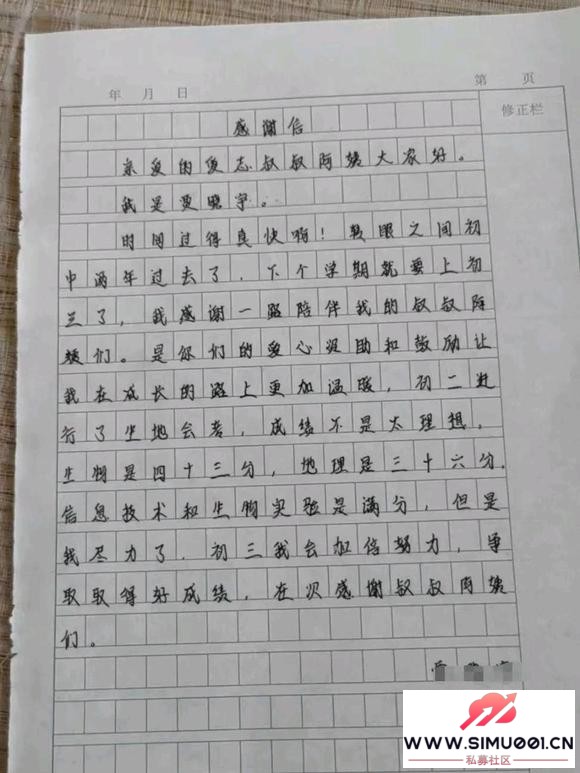 年 月 日 第 页
修正栏
感谢信
亲爱的爱志叔叔阿姨大家好。
我是贾晓宇。
时间过得真快啊！转眼之间初
中两年过去了．下个学期就要上初
三了，我感谢一路陪伴我的叔叔阿
姨们。是你们的爱心资助和鼓励让
我在成长的路上更加温暖，初二进
行了生地会考，成绩不是太理想，
生物是四十三分，地理是三十六分．
信息技术和生物实验是满分，但是
我尽力了．初三我会加倍努力，争
取取得好成绩，在次感谢叔叔阿姨
们。
WWW.SIMU001.CN
私募社区